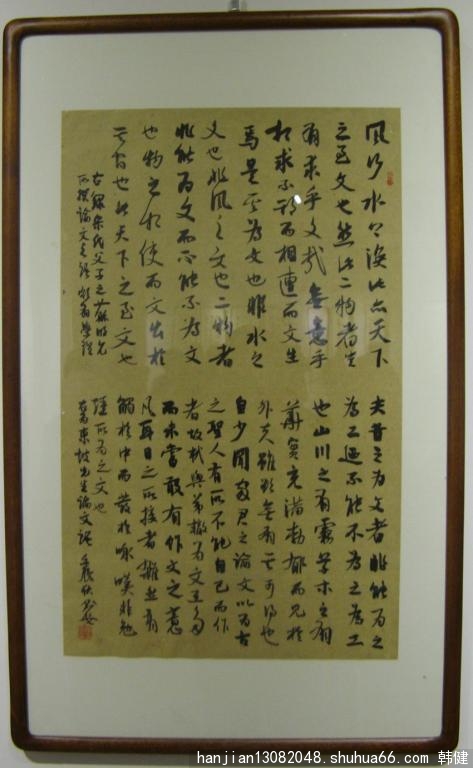 風行水上渙此亦天下
之至文也然此二物者豈
有求乎文哉無意乎
相求不期而相遭而文生
焉是其為文也非水之
文也非風之文也二物者
非能為文而不能不為文
也物之相使而文出於
其間也此天下之至文也
父子之蘇明允
所撰論文
夫昔之為文者非能為之
為工迺不能不為之為工
也山川之有雲霧草木之有
華實充滿勃郁而見於
外夫雖欲無有其可得也
自少聞家君之論文以為古
之聖人有所不能自已而作
者故軾與弟轍為文至多
而未嘗敢有作文之意
凡耳目之所接者雜然有
觸於中而發於咏嘆非勉
強所為之文也
東坡先生論文語
hanjian13082048.shuhua66.com 韩健